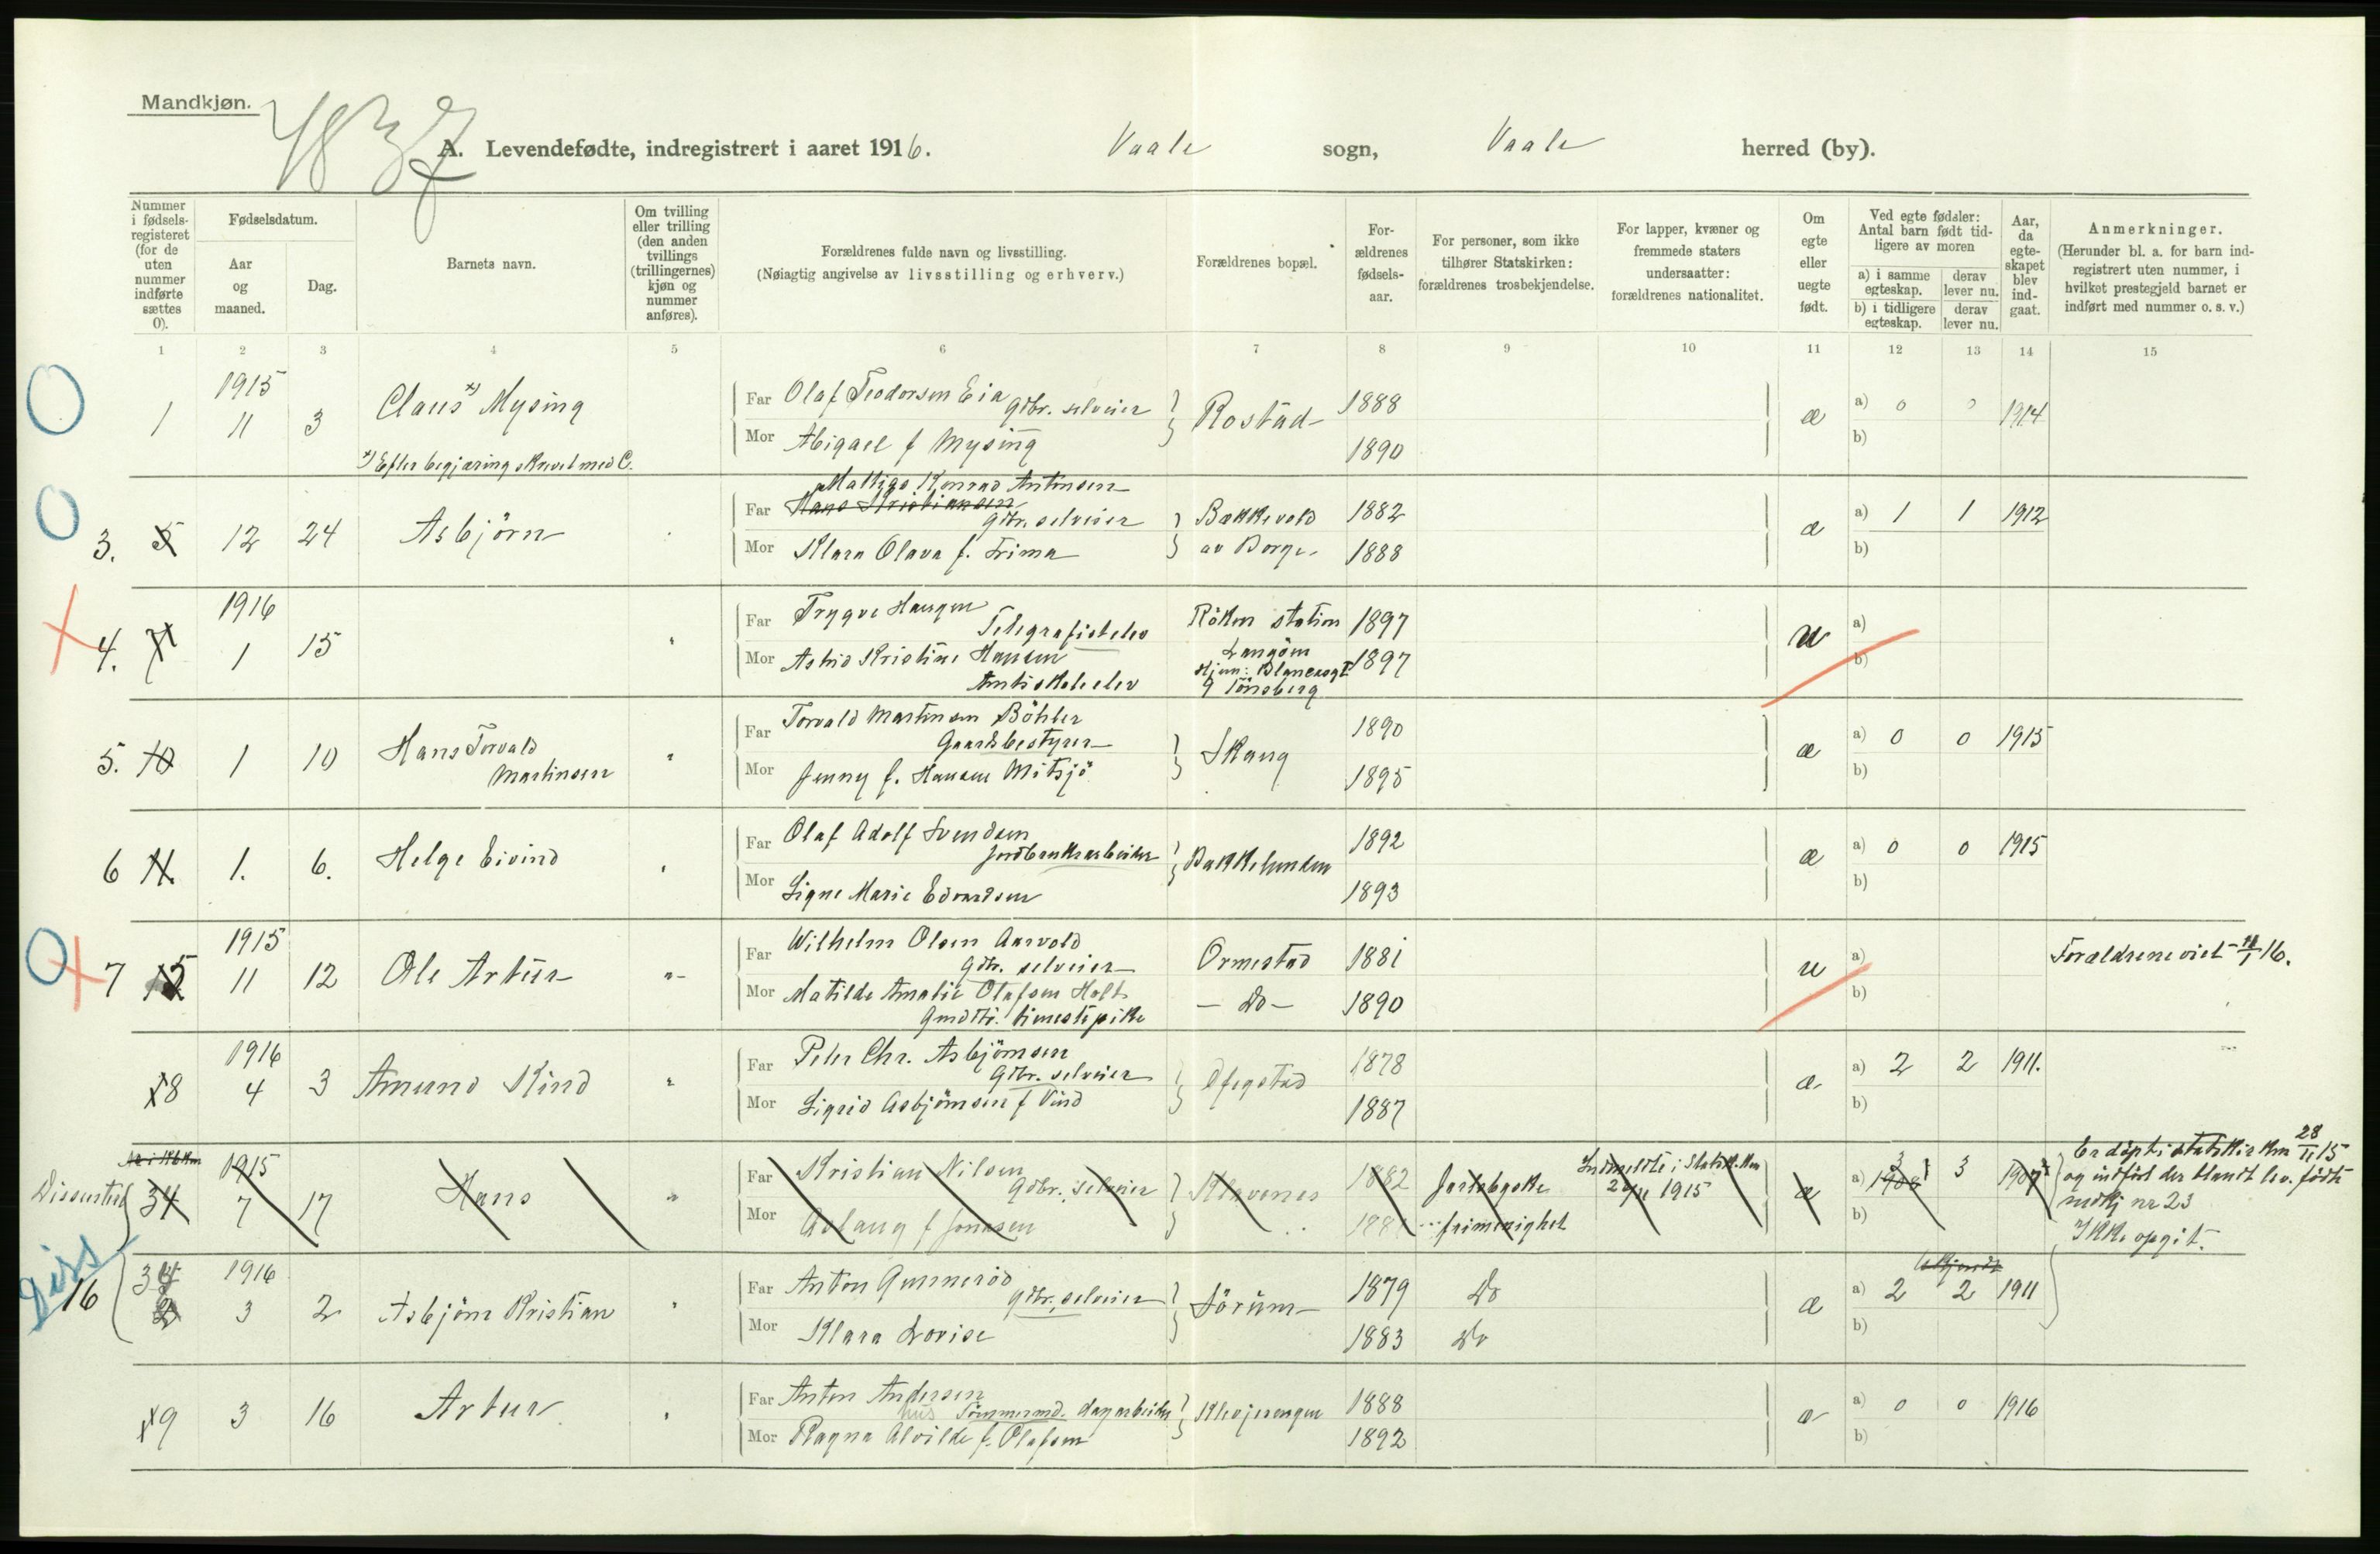 Mandkjøn.
4837
A. Levendefødte, indregistrert i aaret 1916. Vaale sogn, Vaale herred (by).
Nummer i fødsels-registeret (for de uten nummer indførte sættes 0).
Fødselsdatum.
Aar og maaned.
Dag.
Barnets navn.
Om tvilling eller trilling (den anden tvillings (trillingernes) kjøn og nummer anføres).
Forældrenes fulde navn og livsstilling.
(Nøiagtig angivelse av livsstilling og erhverv.)
Forældrenes bopæl.
For-ældrenes fødsels-aar.
For personer, som ikke tilhører Statskirken: forældrenes trosbekjendelse.
For lapper, kvæner og fremmede staters undersaatter: forældrenes nationalitet.
Om egte eller uegte født.
Ved egte fødsler: Antal barn født tid-ligere av moren
a) i samme egteskap.
derav lever nu.
b) i tidligere egteskap.
derav lever nu.
Aar, da egte-skapet blev ind-gaat.
Anmerkninger.
(Herunder bl. a. for barn ind-registrert uten nummer, i hvilket prestegjeld barnet er indført med nummer o. s. v.)
1 2 3 4 5 6 7 8 9 10 11 12 13 14 15
0 1 1915 11 3 Claus x) Mysing
x) Efter begjæring skrevet med C.
Far Olaf Teodorsen Eia Gdbr. selveier
Mor Abigael f Mysing
Rostad 1888 1890 æ a) 0 0 1914
b)
0 3. 5 12 24 Asbjörn
Mathias Konrad Antonsen
Far Hans Kristiansen Gdbr. selveier
Mor Klara Olava f. Frima
Bækkevold av Borge 1882 1888 æ a) 1 1 1912
b)
4. 7 1916 1 15 "
Far Trygve Haugen Telegrafistelev
Mor Astrid Kristine Hansen Amtsskoleelev
Röken station 1897
Langöen
1897
Tönsberg
u a)
b)
5. 10 1 10 Hans Torvald Martinsen "
Far Torvald Martinsen Böhler Gaardsbestyrer
Mor Jenny f. Hansen Mitsjö
Skaug 1890 1895 æ a) 0 0 1915
b)
6 11. 1. 6. Helge Eivind "
Far Olaf Adolf Svendsen Jordbruksarbeider
Mor Signe Marie Edvardsen
Bakkelunden 1892 1893 æ a) 0 0 1915
b)
0 7 15 1915 11 12 Ole Artur "
Far Wilhelm Olsen Aarvold Gdbr. selveier
Mor Matilde Amalie Olafsen Holt
Gmdtr. tjenestepike
Ormestad 1881
- Do - 1890
u a)
b)
Forældrene viet 11/1 16.
8 1916 4 3 Amund Kind "
Far Peter Chr. Asbjörnsen Gdbr. selveier
Mor Sigrid Asbjörnsen f Vind
Ofegstad 1878 1887 æ a) 2 2 1911.
b)
Dissenter 34 1915 7 17 Hans "
Far Kristian Nilsen Gdbr. selveier
Mor Aslaug f Jonassen
Klavenes 1882 Jarlsbgske frimenighet
Indmeldte i Statsk.
1915
æ a) 1908 3 1907
b)
Er döpt i statskirken 28/11 15 og indfört der blandt lev. födte mdkj nr 23
Ikke opgit.
Diss
16 1916 3 2 Asbjörn Kristian "
Far Anton Gunneröd Gdbr. selveier
Mor Klara Lovise
Sörum 1879 Do
1883 Do
æ a) 2 2 1911
b)
9 3 16 Artur "
Far Anton Andersen
hus Tömmermd. dagarbeider
Mor Ragna Alvilde f. Olafsen
Klevjerengen 1888 1892 æ a) 0 0 1916
b)